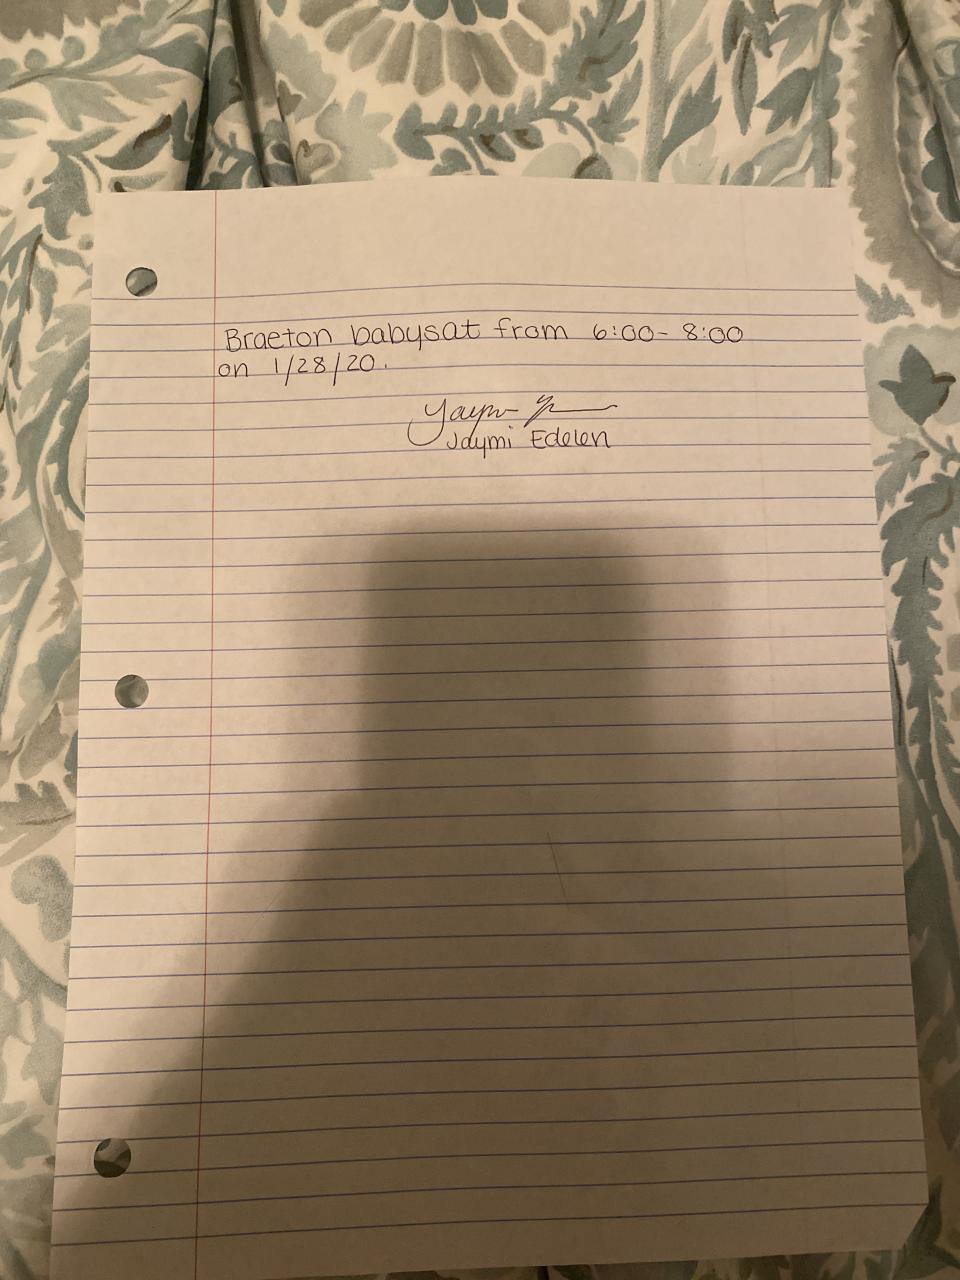 Braeton babysat from 6:00-8:00
on 1/28/20.
Jaymi Edelen